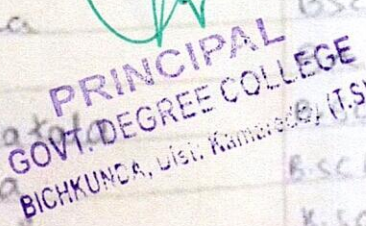 BSC
PRINCIPAL
GOVT. DEGREE COLLEGE
BICHKUNDA, Dist. Kamareddy (T.S)
B.SC